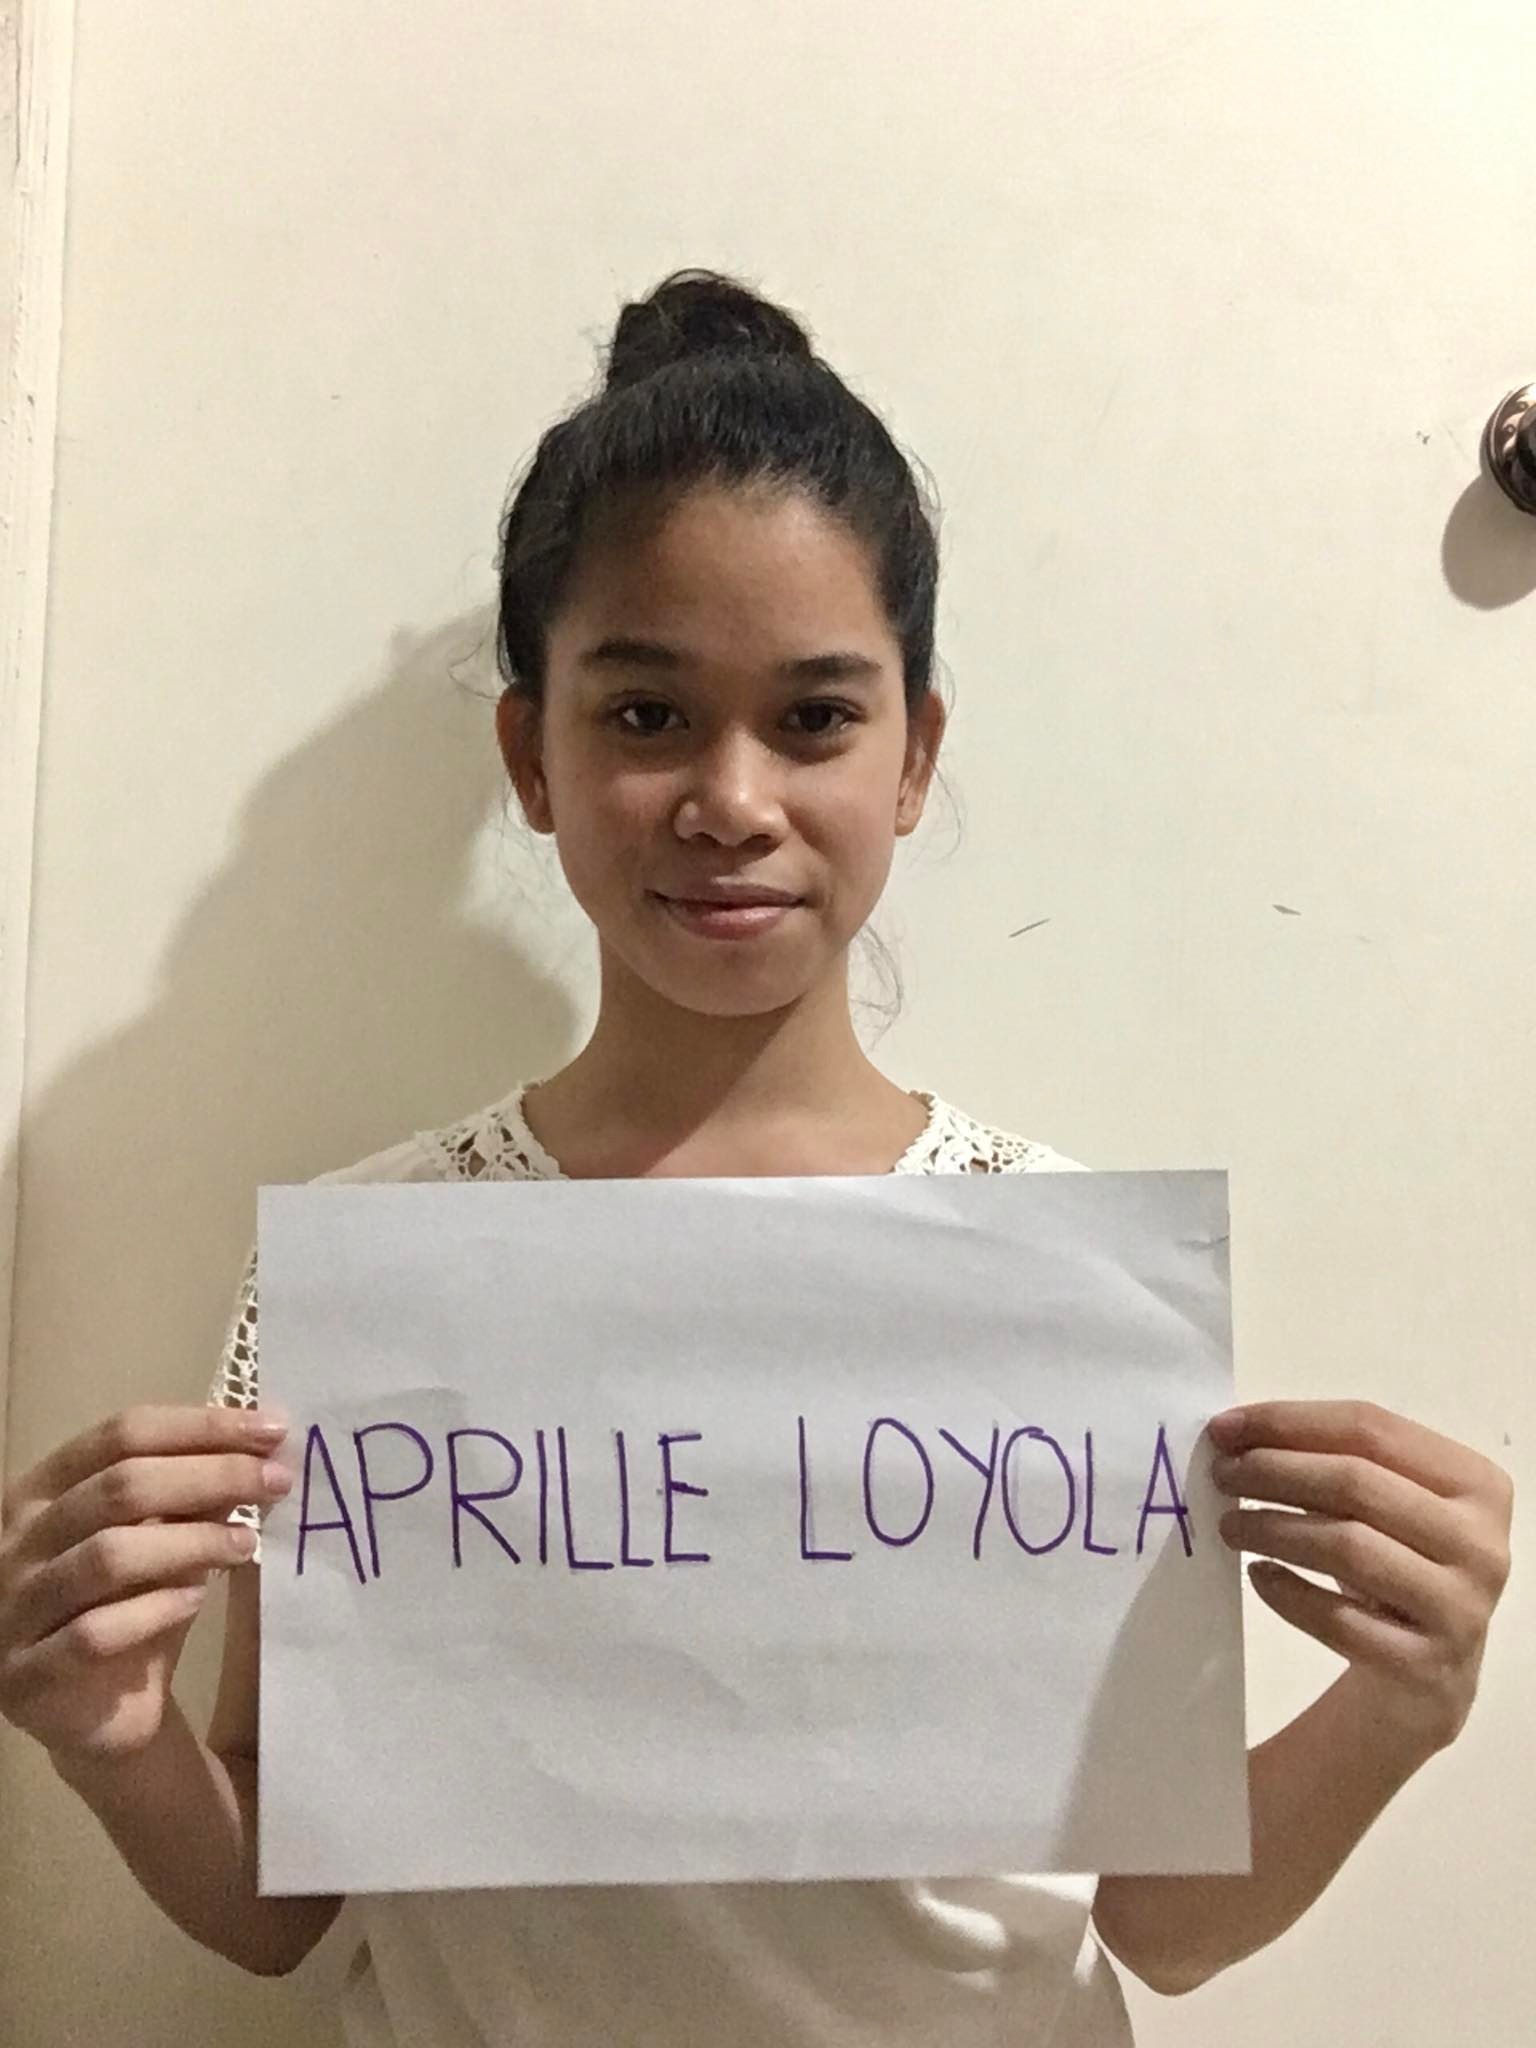 APRILLE LOYOLA